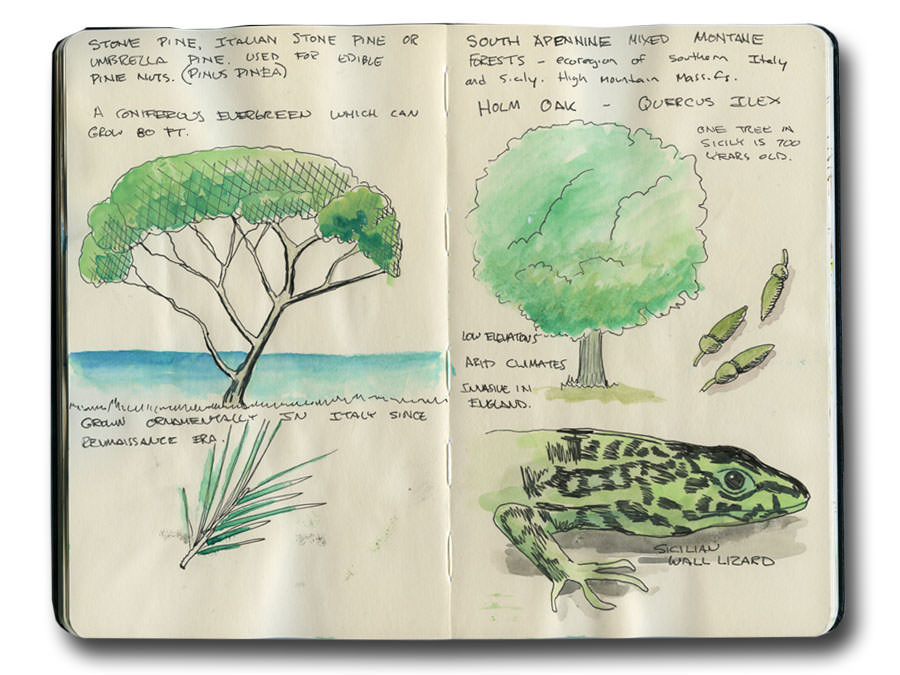 STONE PINE, ITALIAN STONE PINE OR
UMBRELLA PINE. USED FOR EDIBLE
PINE NUTS. (PINUS PINEA)
A CONIFEROUS EVERGREEN WHICH CAN
GROW 80 FT.
GROWN ORNAMENTALLY IN ITALY SINCE
RENNAISSANCE ERA.
SOUTH APENNINE MIXED MONTANE
FORESTS - ecoregion of southern Italy
and Sicily. High Mountain Massifs.
HOLM OAK - QUERCUS ILEX
ONE TREE IN
SICILY IS 700
YEARS OLD.
LOW ELEVATIONS
ARID CLIMATES
INVASIVE IN
ENGLAND.
SICILIAN
WALL LIZARD